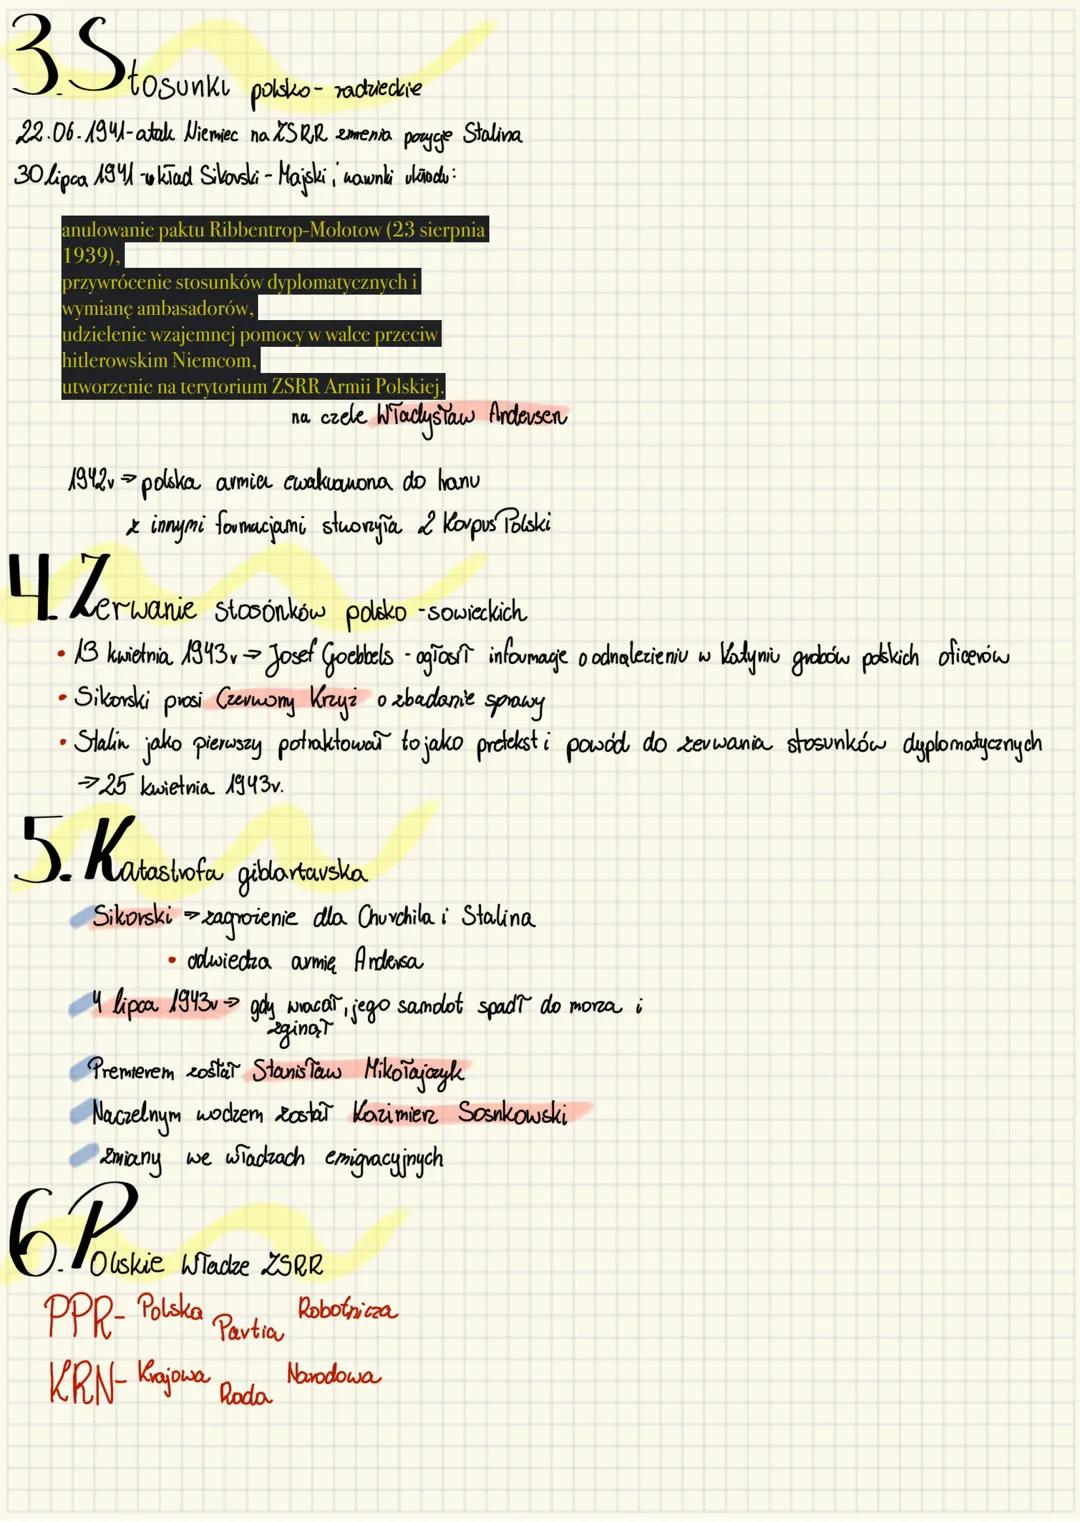 3. Stosunki polsko-radzieckie
22.06.1941-atak Niemiec na ZSRR zmienia pozycje Stalina
30 lipca 1941 - układ Sikorski - Majski; warunki układu:
anulowanie paktu Ribbentrop-Mołotow (23 sierpnia
1939),
przywrócenie stosunków dyplomatycznych i
wymianę ambasadorów,
udzielenie wzajemnej pomocy w walce przeciw
hitlerowskim Niemcom,
utworzenie na terytorium ZSRR Armii Polskiej.
na czele Władysław Andersen
1942r => polska armia ewakuowona do Iranu
z innymi formacjami stworzyła 2 Korpus Polski
4. Zerwanie stosónków polsko-sowieckich
• 13 kwietnia 1943r => Josef Goebbels - ogłosił informacje o odnalezieniu w Katyniu grobów polskich oficerów
• Sikorski prosi Czerwony Krzyż o zbadanie sprawy
• Stalin jako pierwszy potraktował to jako pretekst i powód do zerwania stosunków dyplomatycznych
=> 25 kwietnia 1943r.
5. Katastrofa giblartarska
Sikorski => zagrożenie dla Churchila i Stalina
• odwiedza armię Andersa
4 lipca 1943r => gdy wracał, jego samolot spadł do morza i
zginął
Premierem został Stanisław Mikołajczyk
Naczelnym wodzem został Kazimierz Sosnkowski
zmiany we władzach emigracyjnych
6. Polskie Władze ZSRR
PPR- Polska Partia Robotnicza
KRN- Krajowa Rada Narodowa